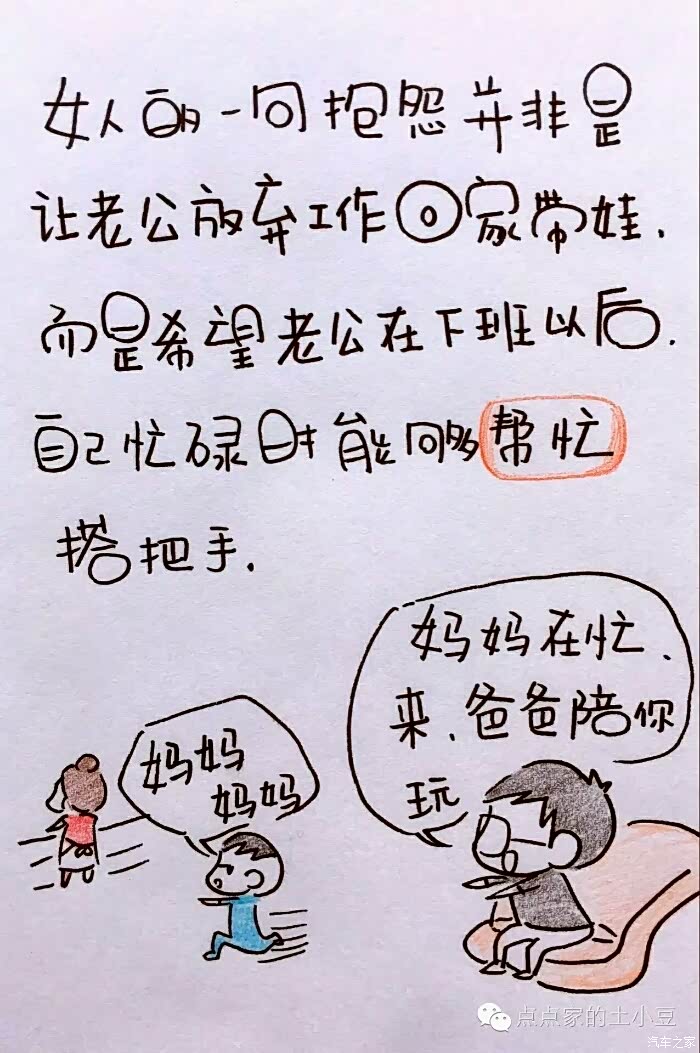 女人的一句抱怨并非是
让老公放弃工作回家带娃.
而是希望老公在下班以后.
自己忙碌时能够帮忙
搭把手.
妈妈在忙.
来.爸爸陪你
玩
妈妈
妈妈
点点家的土小豆
汽车之家